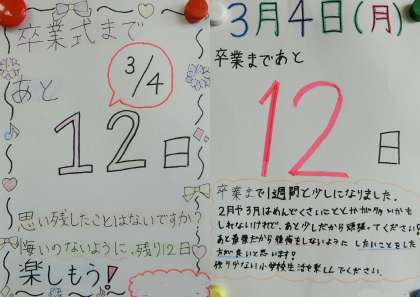 卒業式まで
あと
3/4
12日
思い残したことはないですか?
悔いのないように、残り12日
楽しもう!
3月4日(月)
卒業まであと
12日
卒業まで1週間と少しになりました。
2月や3月はめんどくさいこととかが多いかも
しれないけれど、あと少しだから頑張ってください!
あと最後だから後悔をしないようにしたいことをした
方が良いと思います!
残り少ない小学校生活を楽しんでください。